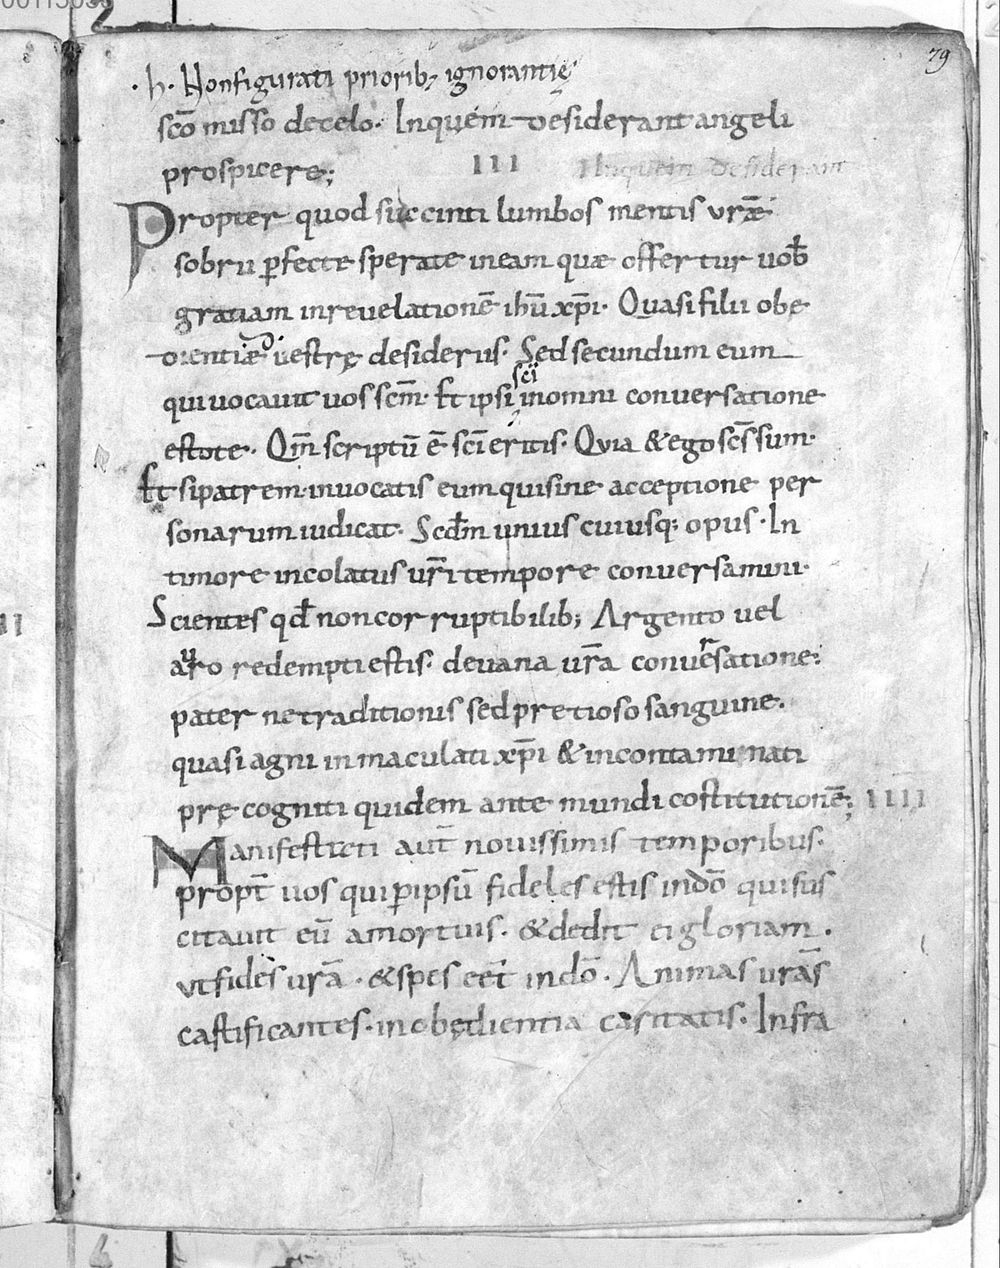 79
.h. Nonfigurati priorib; ignorantię
sc̄o misso decelo. Inquem desiderant angeli
prospicere; III Inquem desiderant
Propter quod succinti lumbos mentis vr̄æ
sobrii ꝑfecte sperate ineam quæ offertur uob̄
gratiam inreuelationē ih̄ū xp̄i. Quasi filii obe
dientiæ ł uestrę desideriis. Sed secundum eum
quiuocauit uos sc̄m. Et ipsi sc̄i inomni conuersatione
estote. Qm̄ scriptū ē sc̄i eritis. Qvia &ego sc̄s sum.
Et sipatrem inuocatis eum quisine acceptione per
sonarum iudicat. Scd̄m unius cuiusq; opus. In
timore incolatus ur̄i tempore conuersamini.
Scientes qd̄ noncorruptibilib; Argento vel
auro redempti estis. deuana ur̄a conuersatione.
paternetraditionis sed pretioso sanguine.
quasi agni inmaculati xp̄i & incontaminati
pręcogniti quidem ante mundi costitutionē; IIII
Manifestati aut̄ nouissimis temporibus.
propt̄ uos qui ꝑipsū fideles estis indō quisus
citauit eū amortuis. &dedit ei gloriam.
vt fides ur̄a. &spes eēt indō. Animas ur̄as
castificantes. inobędientia caritatis. Infra
II